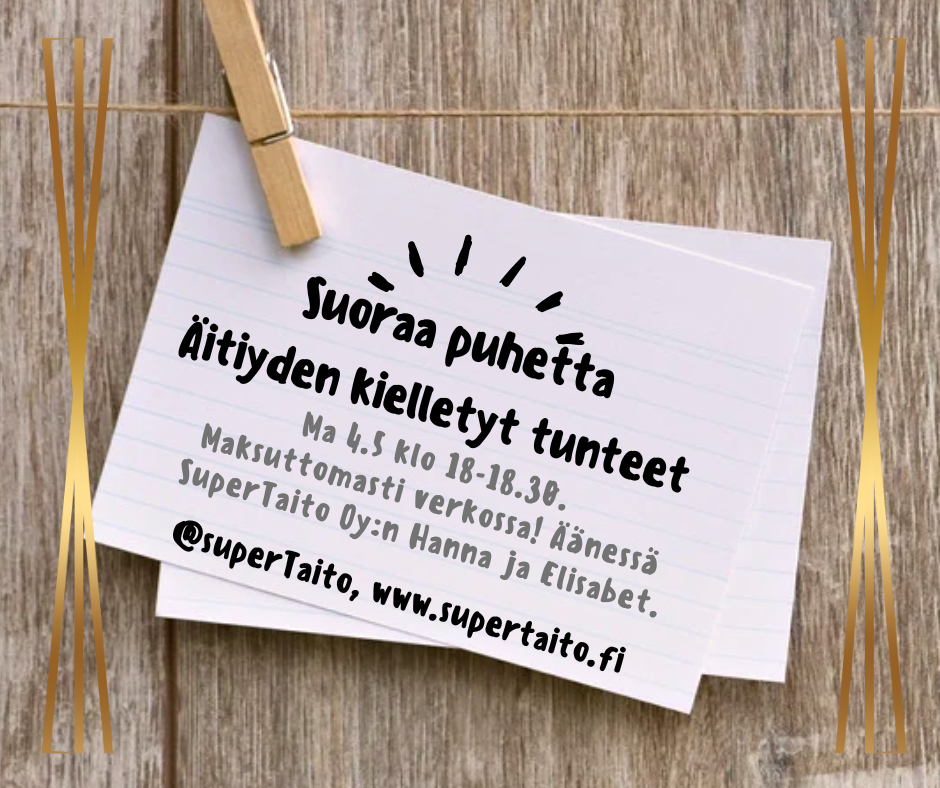 Suoraa puhetta
Äitiyden kielletyt tunteet
Ma 4.5 klo 18-18.30.
Maksuttomasti verkossa! Äänessä
SuperTaito Oy:n Hanna ja Elisabet.
@superTaito, www.supertaito.fi